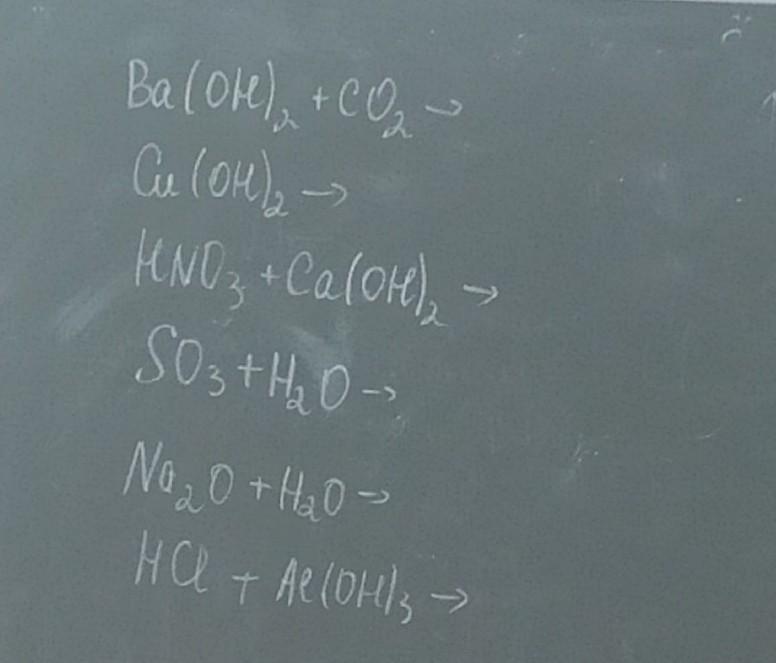 Ba(OH)₂ + CO₂ →
Cu(OH)₂ →
HNO₃ + Ca(OH)₂ →
SO₃ + H₂O →
Na₂O + H₂O →
HCl + Al(OH)₃ →